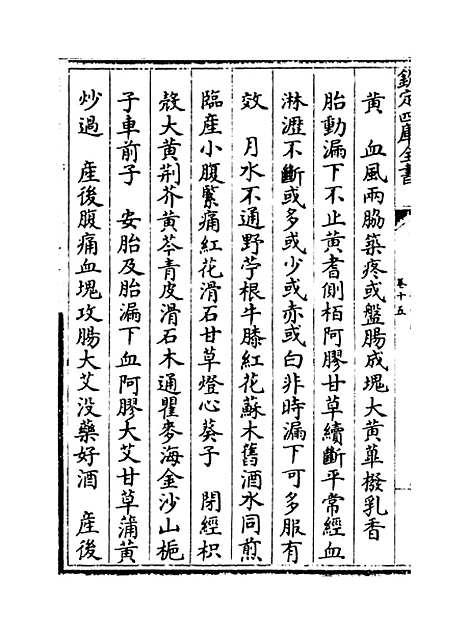 欽定四庫全書
卷十五
黃　血風兩脇築疼或盤腸成塊大黃蓽撥乳香
胎動漏下不止黃耆側栢阿膠甘草續斷平常經血
淋瀝不斷或多或少或赤或白非時漏下可多服有
效　月水不通野苧根牛膝紅花蘇木舊酒水同煎
臨產小腹緊痛紅花滑石甘草燈心葵子　閉經枳
殼大黃荆芥黃芩青皮滑石木通瞿麥海金沙山梔
子車前子　安胎及胎漏下血阿膠大艾甘草蒲黃
炒過　產後腹痛血塊攻腸大艾没藥好酒　產後